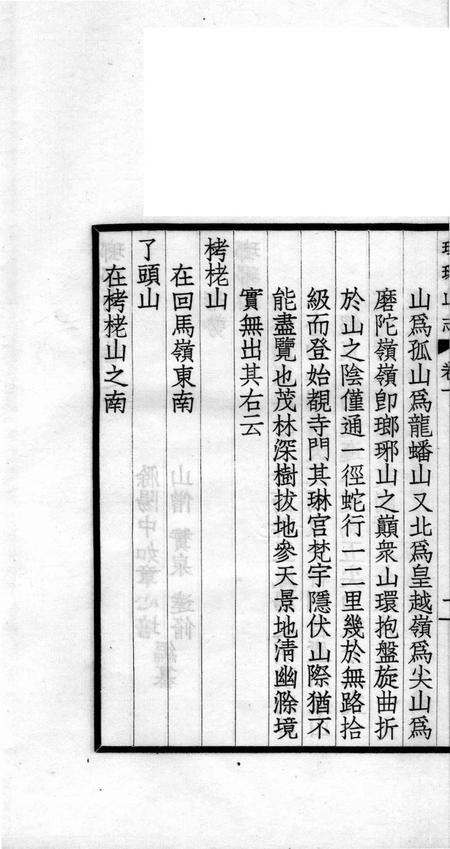 瑯琊山志 卷一
山為孤山為龍蟠山又北為皇越嶺為尖山為
磨陀嶺嶺卽瑯琊山之巔衆山環抱盤旋曲折
於山之陰僅通一徑蛇行一二里幾於無路拾
級而登始覩寺門其琳宮梵宇隱伏山際猶不
能盡覽也茂林深樹拔地參天景地淸幽滁境
實無出其右云
栲栳山
在回馬嶺東南
了頭山
在栲栳山之南